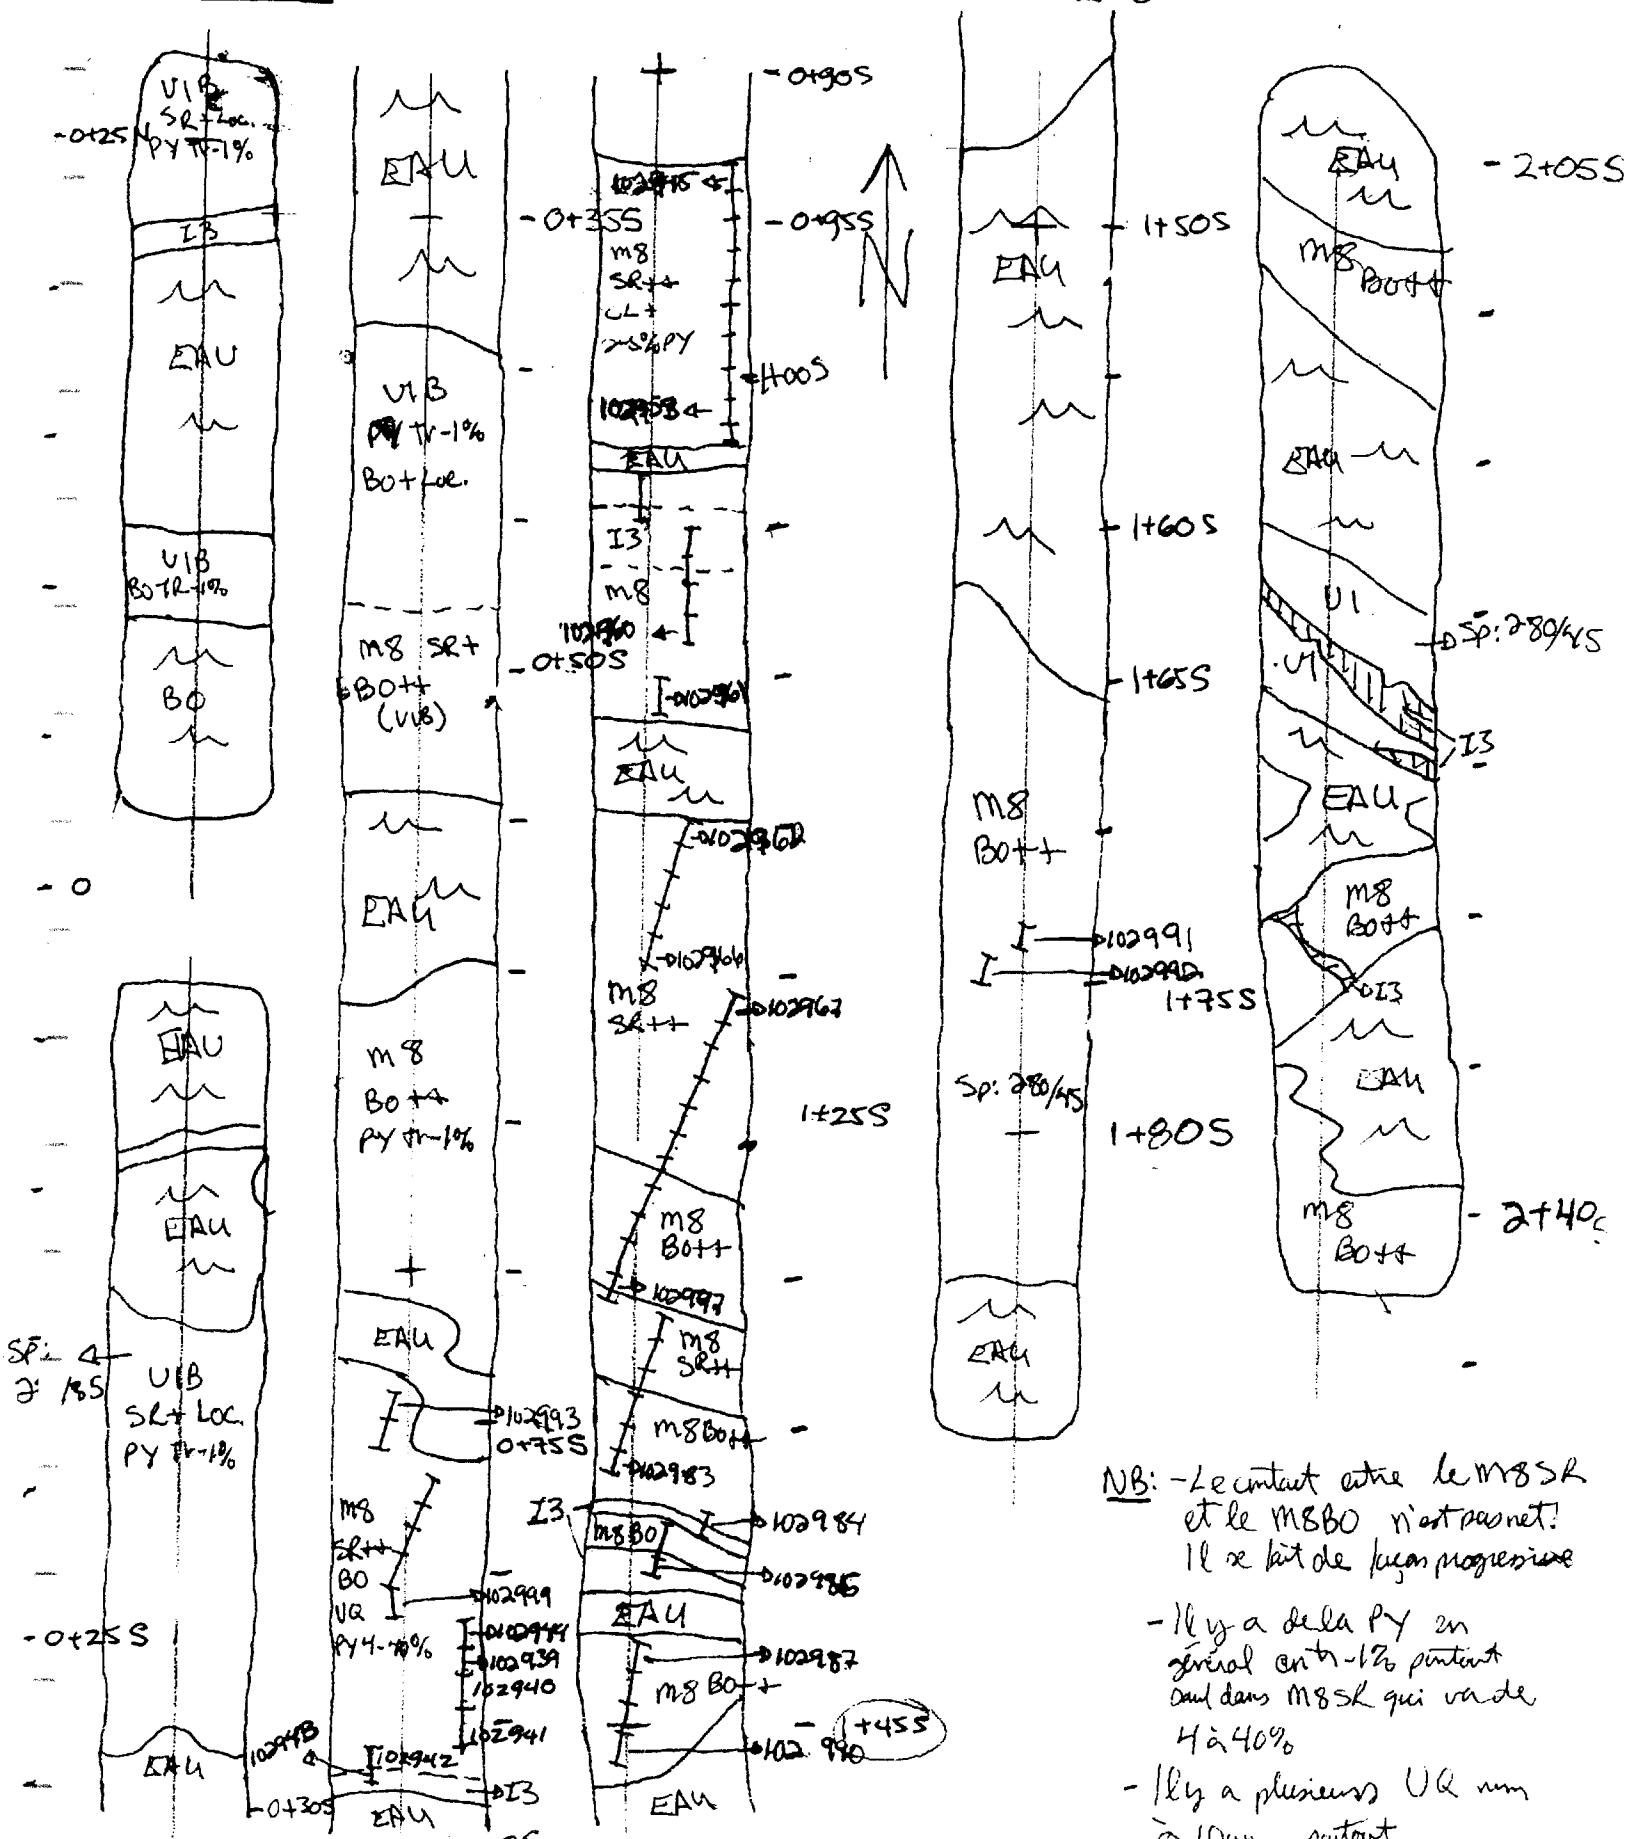 V1B
SR+ Loc.
-0+25N
PY Tr-1%
I3
EAU
V1B
BO TR-1%
BO
- 0
EAU
EAU
V1B
SR+ Loc.
PY Tr-1%
-0+25S
EAU
-0+30S
EAU
-0+35S
V1B
PY Tr-1%
BO+ Loc.
M8 SR+
BO++
(V1B)
-0+50S
EAU
M8
BO++
PY tr-1%
EAU
102993
0+75S
M8
SR++
BO
VQ
102999
102944
102939
102940
102941
102942
I3
EAU
-0+90S
-0+95S
M8
SR++
CL+
2-5% PY
1+00S
EAU
I3
M8
102960
102961
EAU
102962
102966
M8
SR++
102967
1+25S
M8
BO++
M8
SR++
M8 BO++
102983
I3
M8 BO
102984
EAU
102987
M8 BO++
1+45S
102990
EAU
N
1+50S
EAU
1+60S
1+65S
M8
BO++
102991
102992
1+75S
Sp: 280/45
1+80S
EAU
EAU
- 2+05S
M8
BO++
EAU
V1
Sp: 280/45
V1
I3
EAU
M8
BO++
I3
EAU
M8
BO++
- 2+40S
NB: - Le contact entre le M8SR
et le M8BO n'est pas net!
Il se fait de façon progressive
- Il y a de la PY en
général en tr-1% partout
sauf dans M8SR qui va de
4 à 40%
- Il y a plusieurs VQ mm
partout